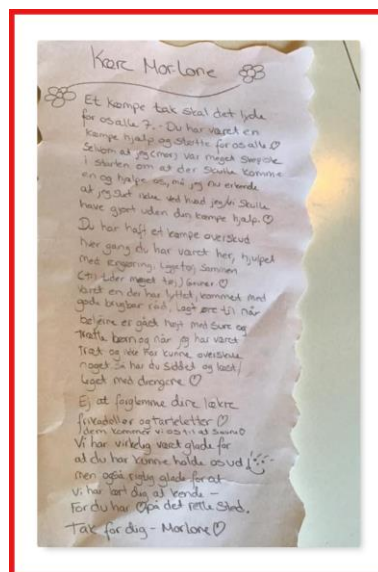 Kære Marlone
Et kæmpe tak skal det lyde
for os alle 7. - Du har været en
kæmpe hjælp og støtte for os alle ♡
Selvom at jeg (mor) var meget
i starten om at der skulle komme
en og hjælpe os, må jeg nu erkende
at jeg slet ikke ved hvad jeg/vi skulle
have gjort uden den kæmpe hjælp. ♡
Du har haft et kæmpe overskud
hver gang du har været her, hjulpet
med rengøring, Lagt tøj Sammen
(til tider meget tøj) Griner ♡
været en der har lyttet, kommet med
gode brugbar råd, Lagt øre til når
bølgerne er gået højt med sure og
trætte børn og når jeg har været
træt og ikke har kunne overskue
noget så har du siddet og læst/
leget med drengene ♡
Ej at forglemme dine lækre
frikadeller og tarteletter ♡
(dem kommer vi os til at savne)
Vi har virkelig været glade for
at du har kunne holde os ud
men også rigtig glade for at
vi har lært dig at kende -
For du har ♡ på det rette sted.
Tak for dig - Marlone ♡